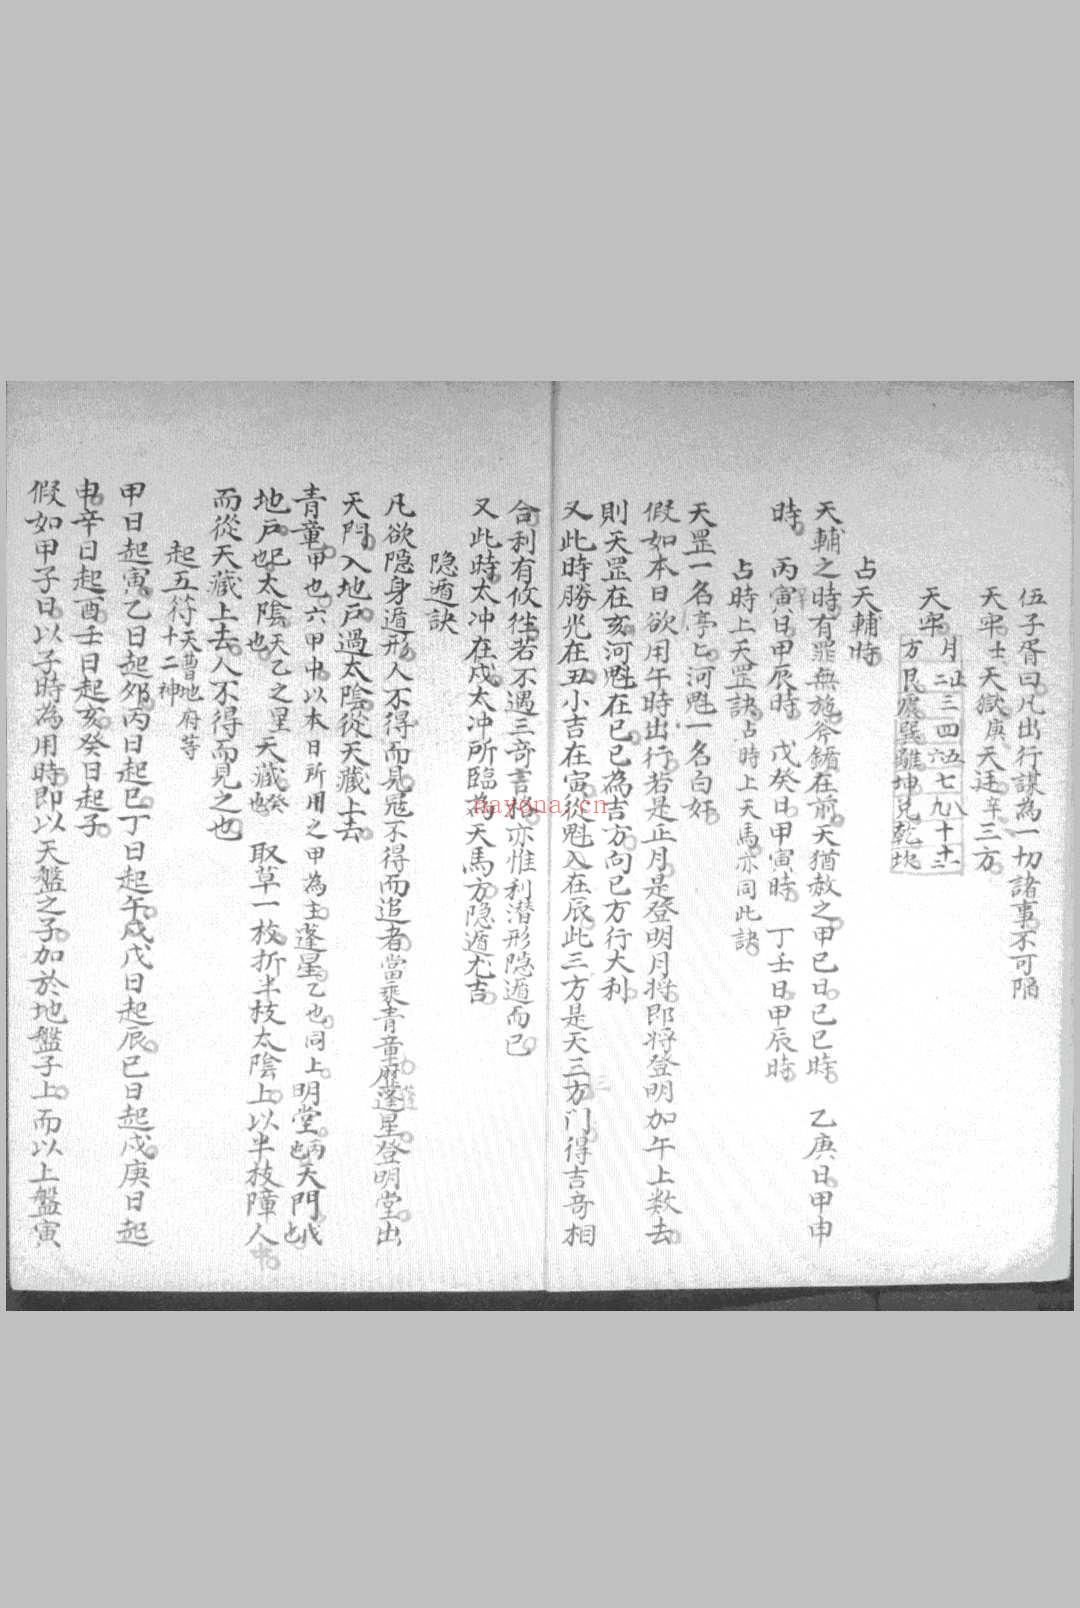 伍子胥曰凡出行謀為一切諸事不可陷
天牢壬天獄庚天廷辛三方
天牢
月 二 三 四 五 六 七 八 九 十
方 艮 震 巽 離 坤 兌 乾 坎
占天輔時
天輔之時有罪無施斧鑕在前天猶赦之甲己日己巳時 乙庚日甲申
時 丙寅日甲辰時 戊癸日甲寅時 丁壬日甲辰時
占時上天罡訣占時上天馬亦同此訣
天罡一名亭亡河魁一名白奸
假如本日欲用午時出行若是正月是登明月將即將登明加午上數去
則天罡在亥河魁在巳巳為吉方向巳方行大利
又此時勝光在丑小吉在寅從魁入在辰此三方是天三方门得吉奇相
合利有攸徃若不遇三奇吉格亦惟利潜形隐遁而已
又此時太冲在戍太冲所臨為天馬方隐遁尤吉
隐遁訣
凡欲隐身遁形人不得而見冦不得而追者當乘青童麻蓬星登明堂出
天門入地戶過太陰從天藏上去
青童甲也六甲中以本日所用之甲為主蓬星乙也同上明堂丙也天門戊也
地戶巳也太陰天乙之里也天藏癸也 取草一枚折半枝太陰上以半枝障人中
而從天藏上去人不得而見之也
起五符天曹地府等十二神
甲日起寅乙日起夘丙日起巳丁日起午戊戊日起辰己日起戍庚日起
申辛日起酉壬日起亥癸日起子
假如甲子日以子時為用時即以天盤之子加於地盤子上而以上盤寅
nayona.cn